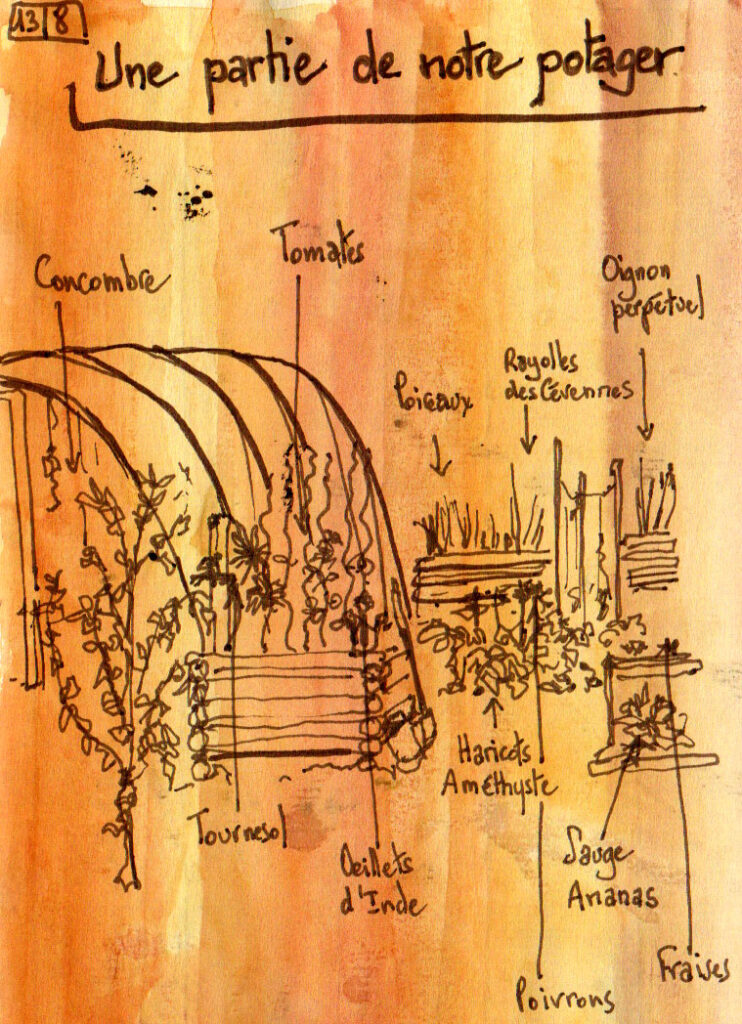 13|8
Une partie de notre potager
Concombre
Tomates
Oignon
perpétuel
Poireaux
Rayolles
des Cévennes
Haricots
Améthyste
Tournesol
Oeillets
d'Inde
Sauge
Ananas
Poivrons
Fraises